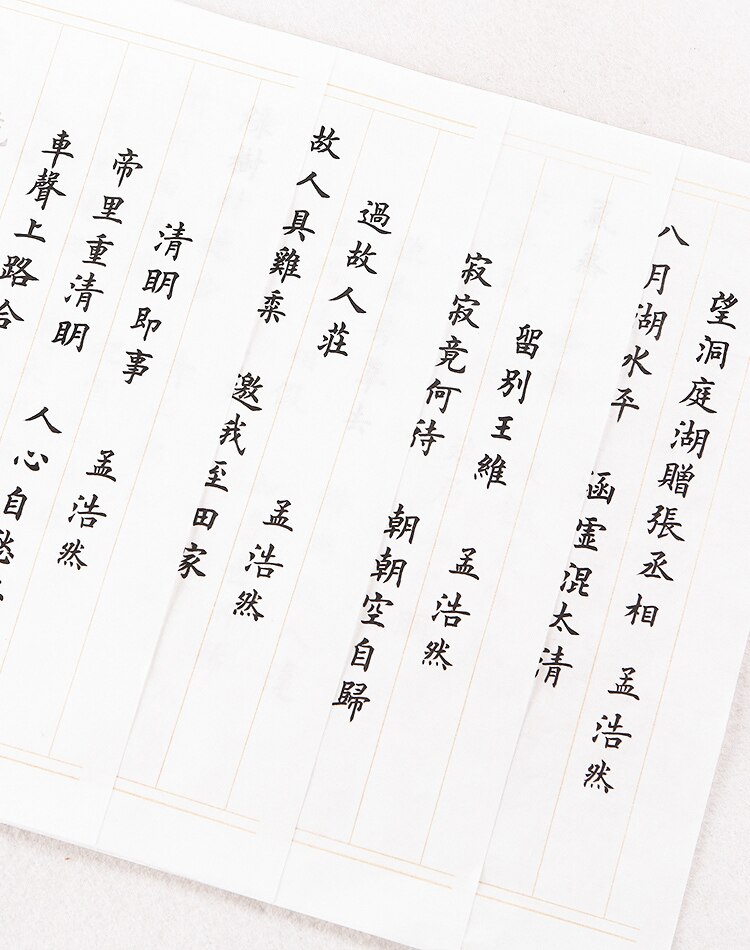 望洞庭湖贈張丞相 孟浩然
八月湖水平 涵虛混太清
留別王維 孟浩然
寂寂竟何待 朝朝空自歸
過故人莊 孟浩然
故人具雞黍 邀我至田家
清明即事 孟浩然
帝里重清明 人心自愁
車聲上路合